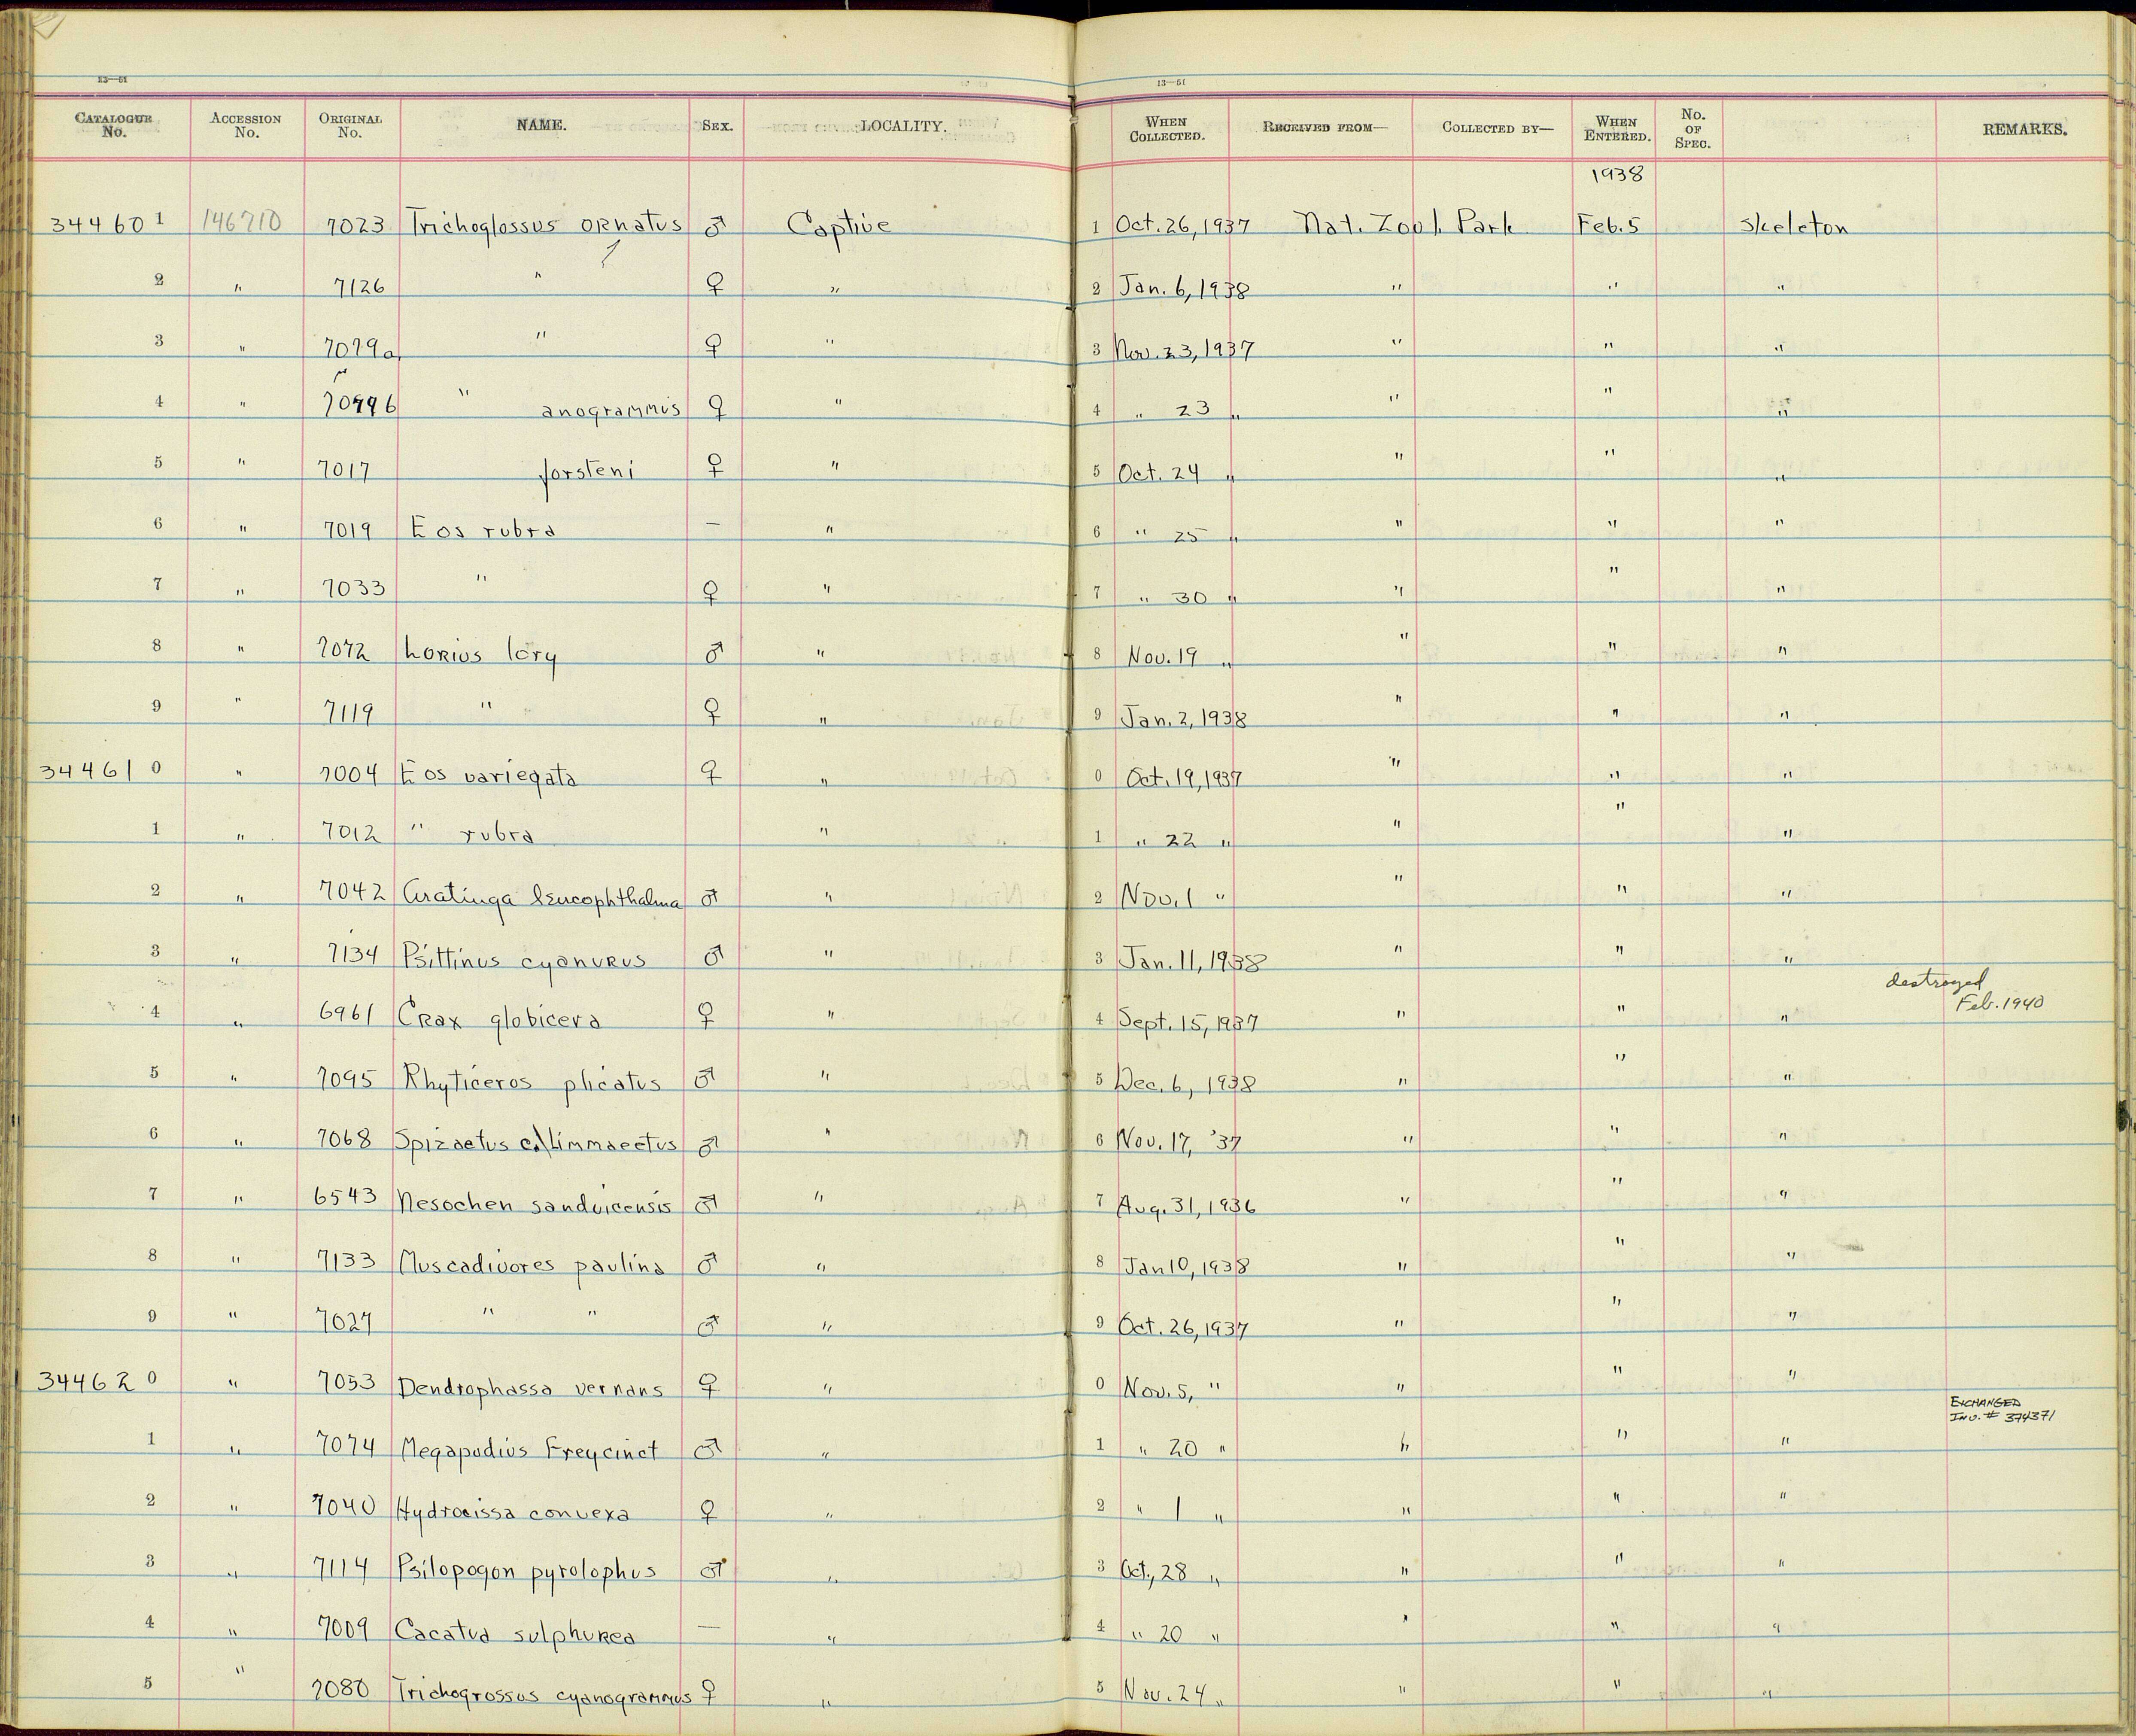 13—51 13—51
CATALOGUE No. ACCESSION No. ORIGINAL No. NAME. SEX. LOCALITY. WHEN COLLECTED. RECEIVED FROM— COLLECTED BY— WHEN ENTERED. No. OF SPEC. REMARKS.
1938
34460 1 146710 7023 Trichoglossus ornatus ♂ Captive 1 Oct. 26, 1937 Nat. Zool. Park Feb. 5 Skeleton
2 " 7126 " ♀ " 2 Jan. 6, 1938 " " "
3 " 7079a " ♀ " 3 Nov. 23, 1937 " " "
4 " " anogrammis ♀ " 4 " 23 " " " "
5 " 7017 forsteni ♀ " 5 Oct. 24 " " " "
6 " 7019 Eos rubra — " 6 " 25 " " " "
7 " 7033 " ♀ " 7 " 30 " " " "
8 " 7072 Lorius lory ♂ " 8 Nov. 19 " " " "
9 " 7119 " " ♀ " 9 Jan. 2, 1938 " " "
34461 0 " 7004 Eos variegata ♀ " 0 Oct. 19, 1937 " " "
1 " 7012 " rubra " 1 " 22 " " " "
2 " 7042 Aratinga leucophthalma ♂ " 2 Nov. 1 " " " "
3 " 7134 Psittinus cyanurus ♂ " 3 Jan. 11, 1938 " " "
4 " 6961 Crax globicera ♀ " 4 Sept. 15, 1937 " " " destroyed Feb. 1940
5 " 7095 Rhyticeros plicatus ♂ " 5 Dec. 6, 1938 " " "
6 " 7068 Spizaetus c. limnaeetus ♂ " 6 Nov. 17, '37 " " "
7 " 6543 Nesochen sandvicensis ♂ " 7 Aug. 31, 1936 " " "
8 " 7133 Muscadivores paulina ♂ " 8 Jan 10, 1938 " " "
9 " 7027 " " ♂ " 9 Oct. 26, 1937 " " "
34462 0 " 7053 Dendrophassa vernans ♀ " 0 Nov. 5, " " " "
EXCHANGED
INV. # 374371
1 " 7074 Megapodius Freycinet ♂ " 1 " 20 " " " "
2 " 7040 Hydrocissa convexa ♀ " 2 " 1 " " " "
3 " 7114 Psilopogon pyrolophus ♂ " 3 Oct. 28 " " " "
4 " 7009 Cacatua sulphurea — " 4 " 20 " " " "
5 " 7080 Trichogrossus cyanogrammus ♀ " 5 Nov. 24 " " " "